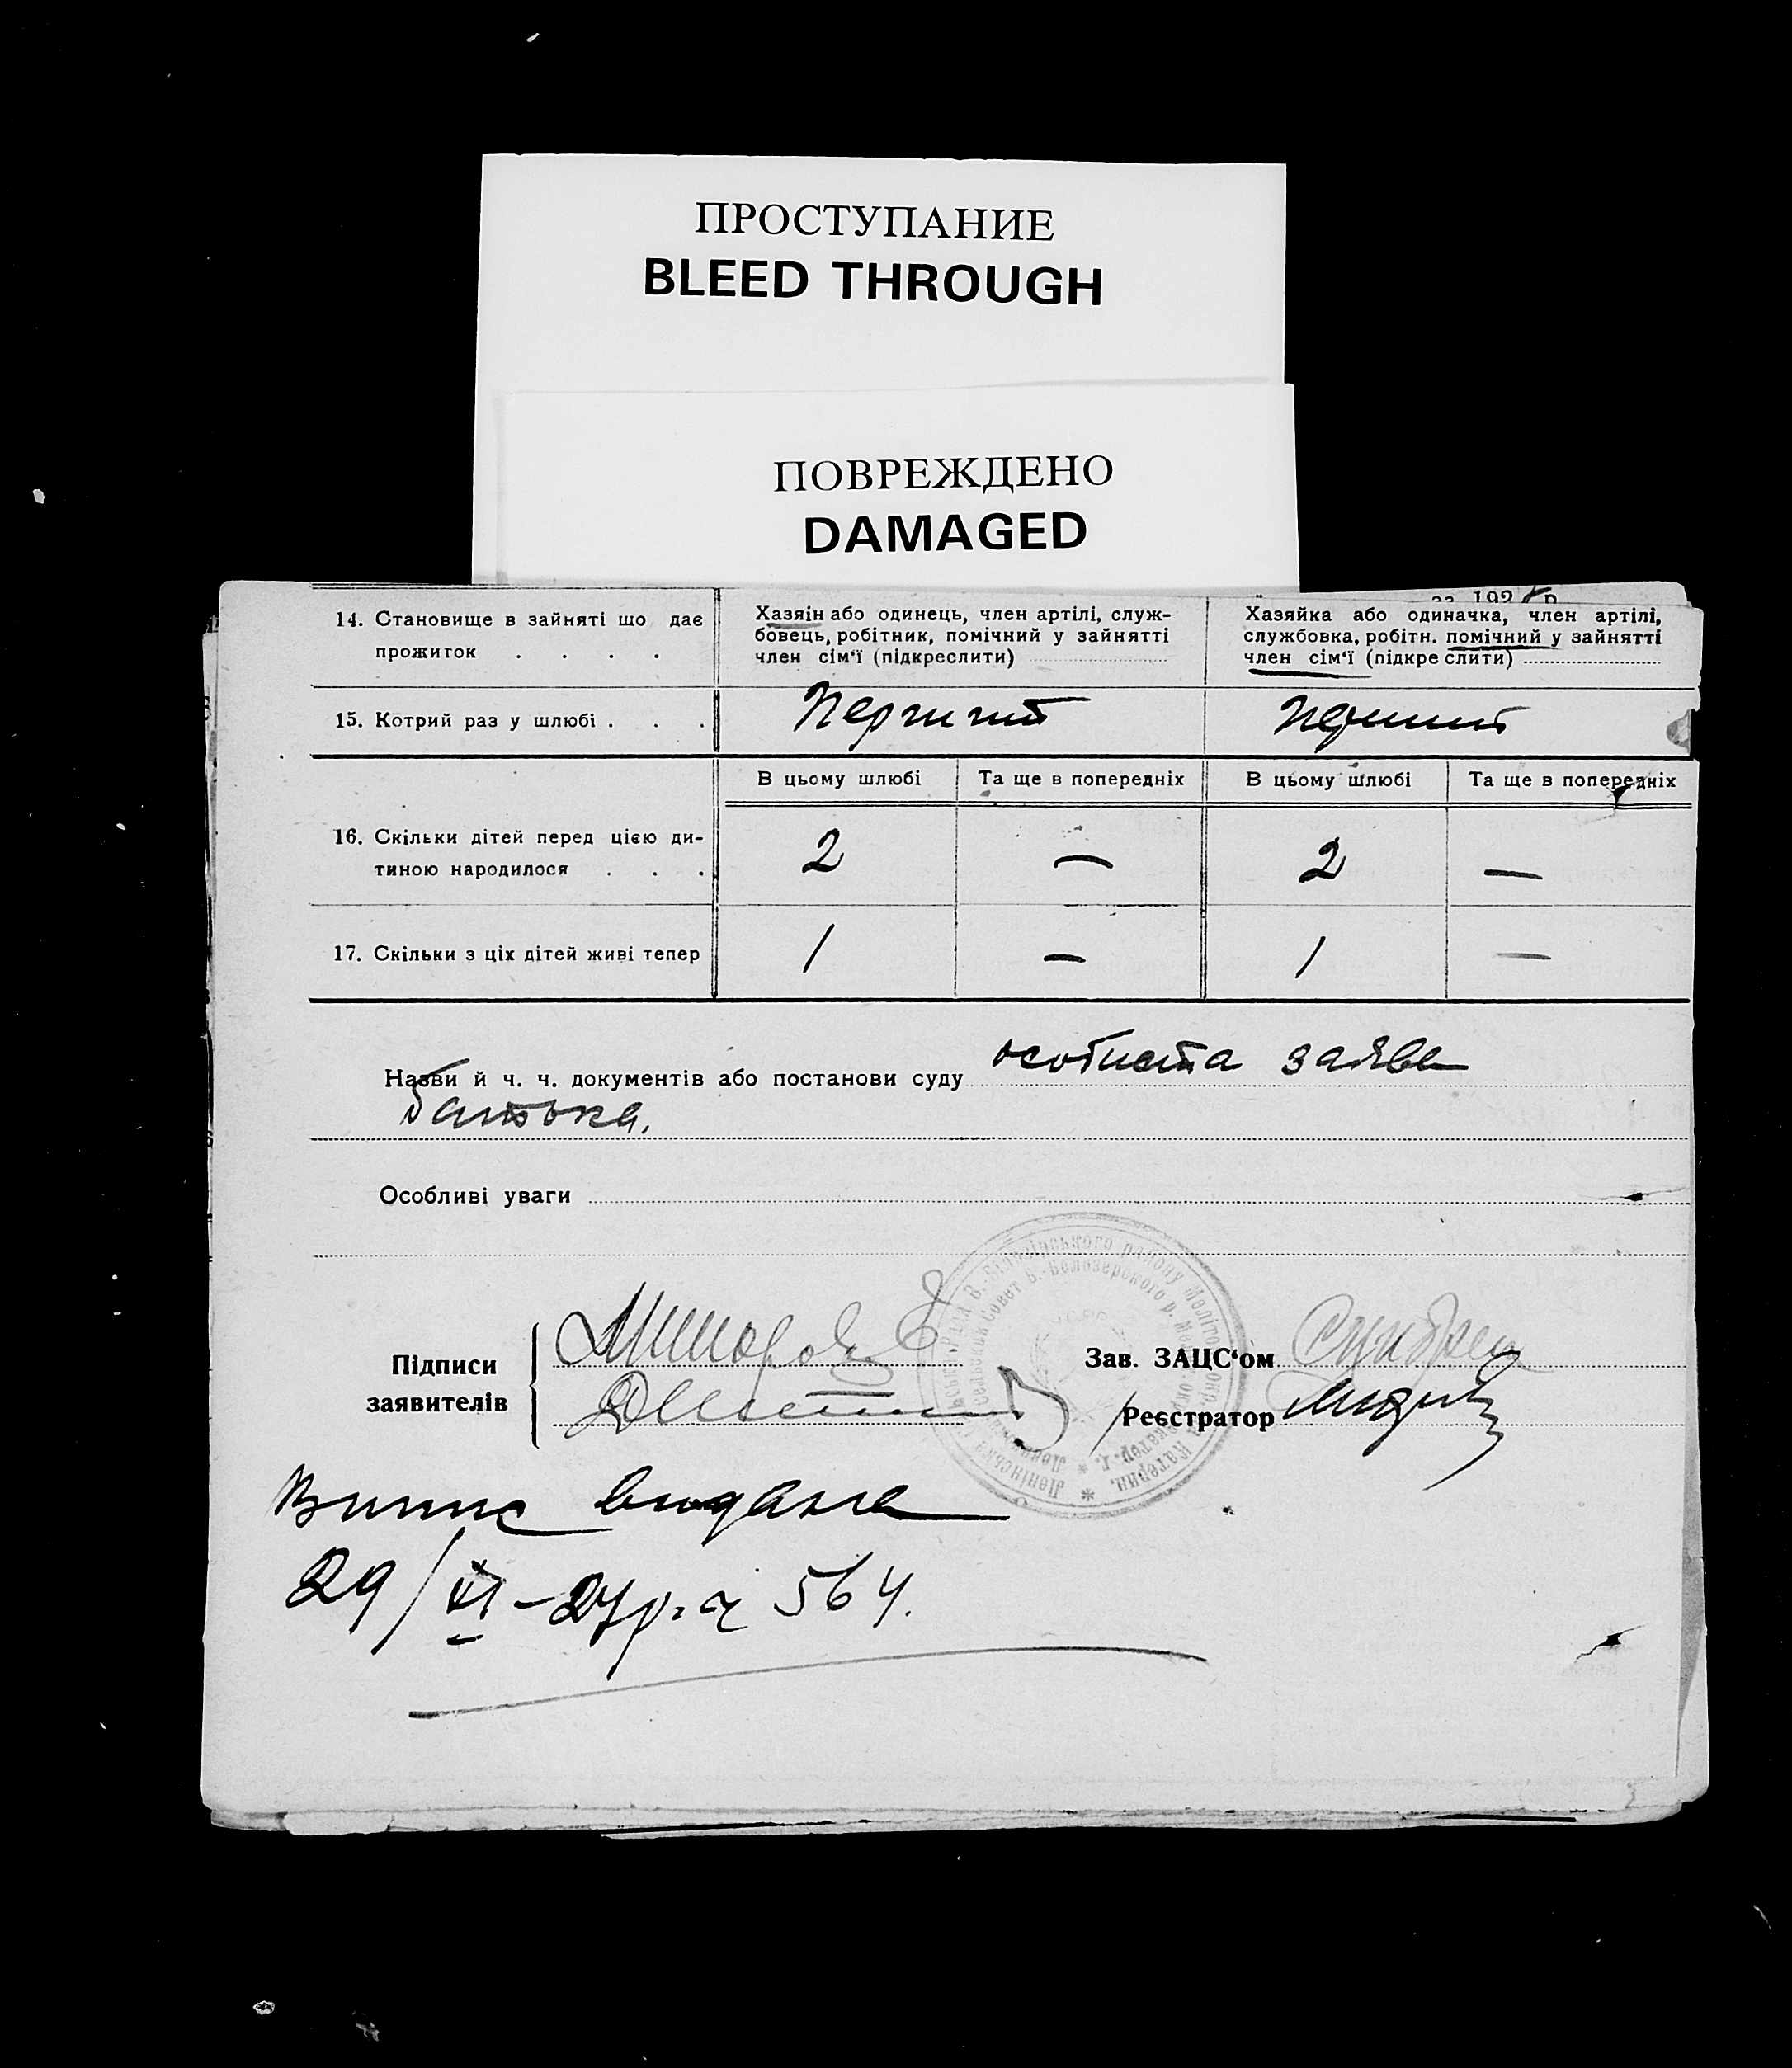 ПРОСТУПАНИЕ
BLEED THROUGH
ПОВРЕЖДЕНО
DAMAGED
за 192 р
14. Становище в зайняті що дає
прожиток . . . .
Хазяін або одинець, член артілі, служ-
бовець, робітник, помічний у зайнятті
член сім‘ї (підкреслити)
Хазяйка або одиначка, член артілі,
службовка, робітн. помічний у зайнятті
член сім‘ї (підкреслити)
15. Котрий раз у шлюбі . . .
Перший
Перший
В цьому шлюбі
Та ще в попередніх
В цьому шлюбі
Та ще в попередніх
16. Скільки дітей перед цією ди-
тиною народилося . . .
2 — 2 —
17. Скільки з ціх дітей живі тепер
1 — 1 —
Назви й ч. ч. документів або постанови суду особиста заява
батька,
Особливі уваги
Підписи
заявителів
Зав. ЗАЦС‘ом
Реєстратор
Випис видана
29/XI-27р. ч 564.